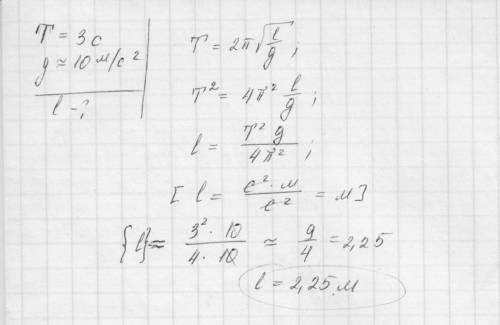 T = 3 с
g ≈ 10 м/с²
l - ?
T = 2π√(l/g) ;
T² = 4π² l/g ;
l = T² g / 4π² ;
[ l = с² · м / с² = м ]
{l} ≈ 3² · 10 / 4 · 10 ≈ 9/4 = 2,25
l = 2,25 м